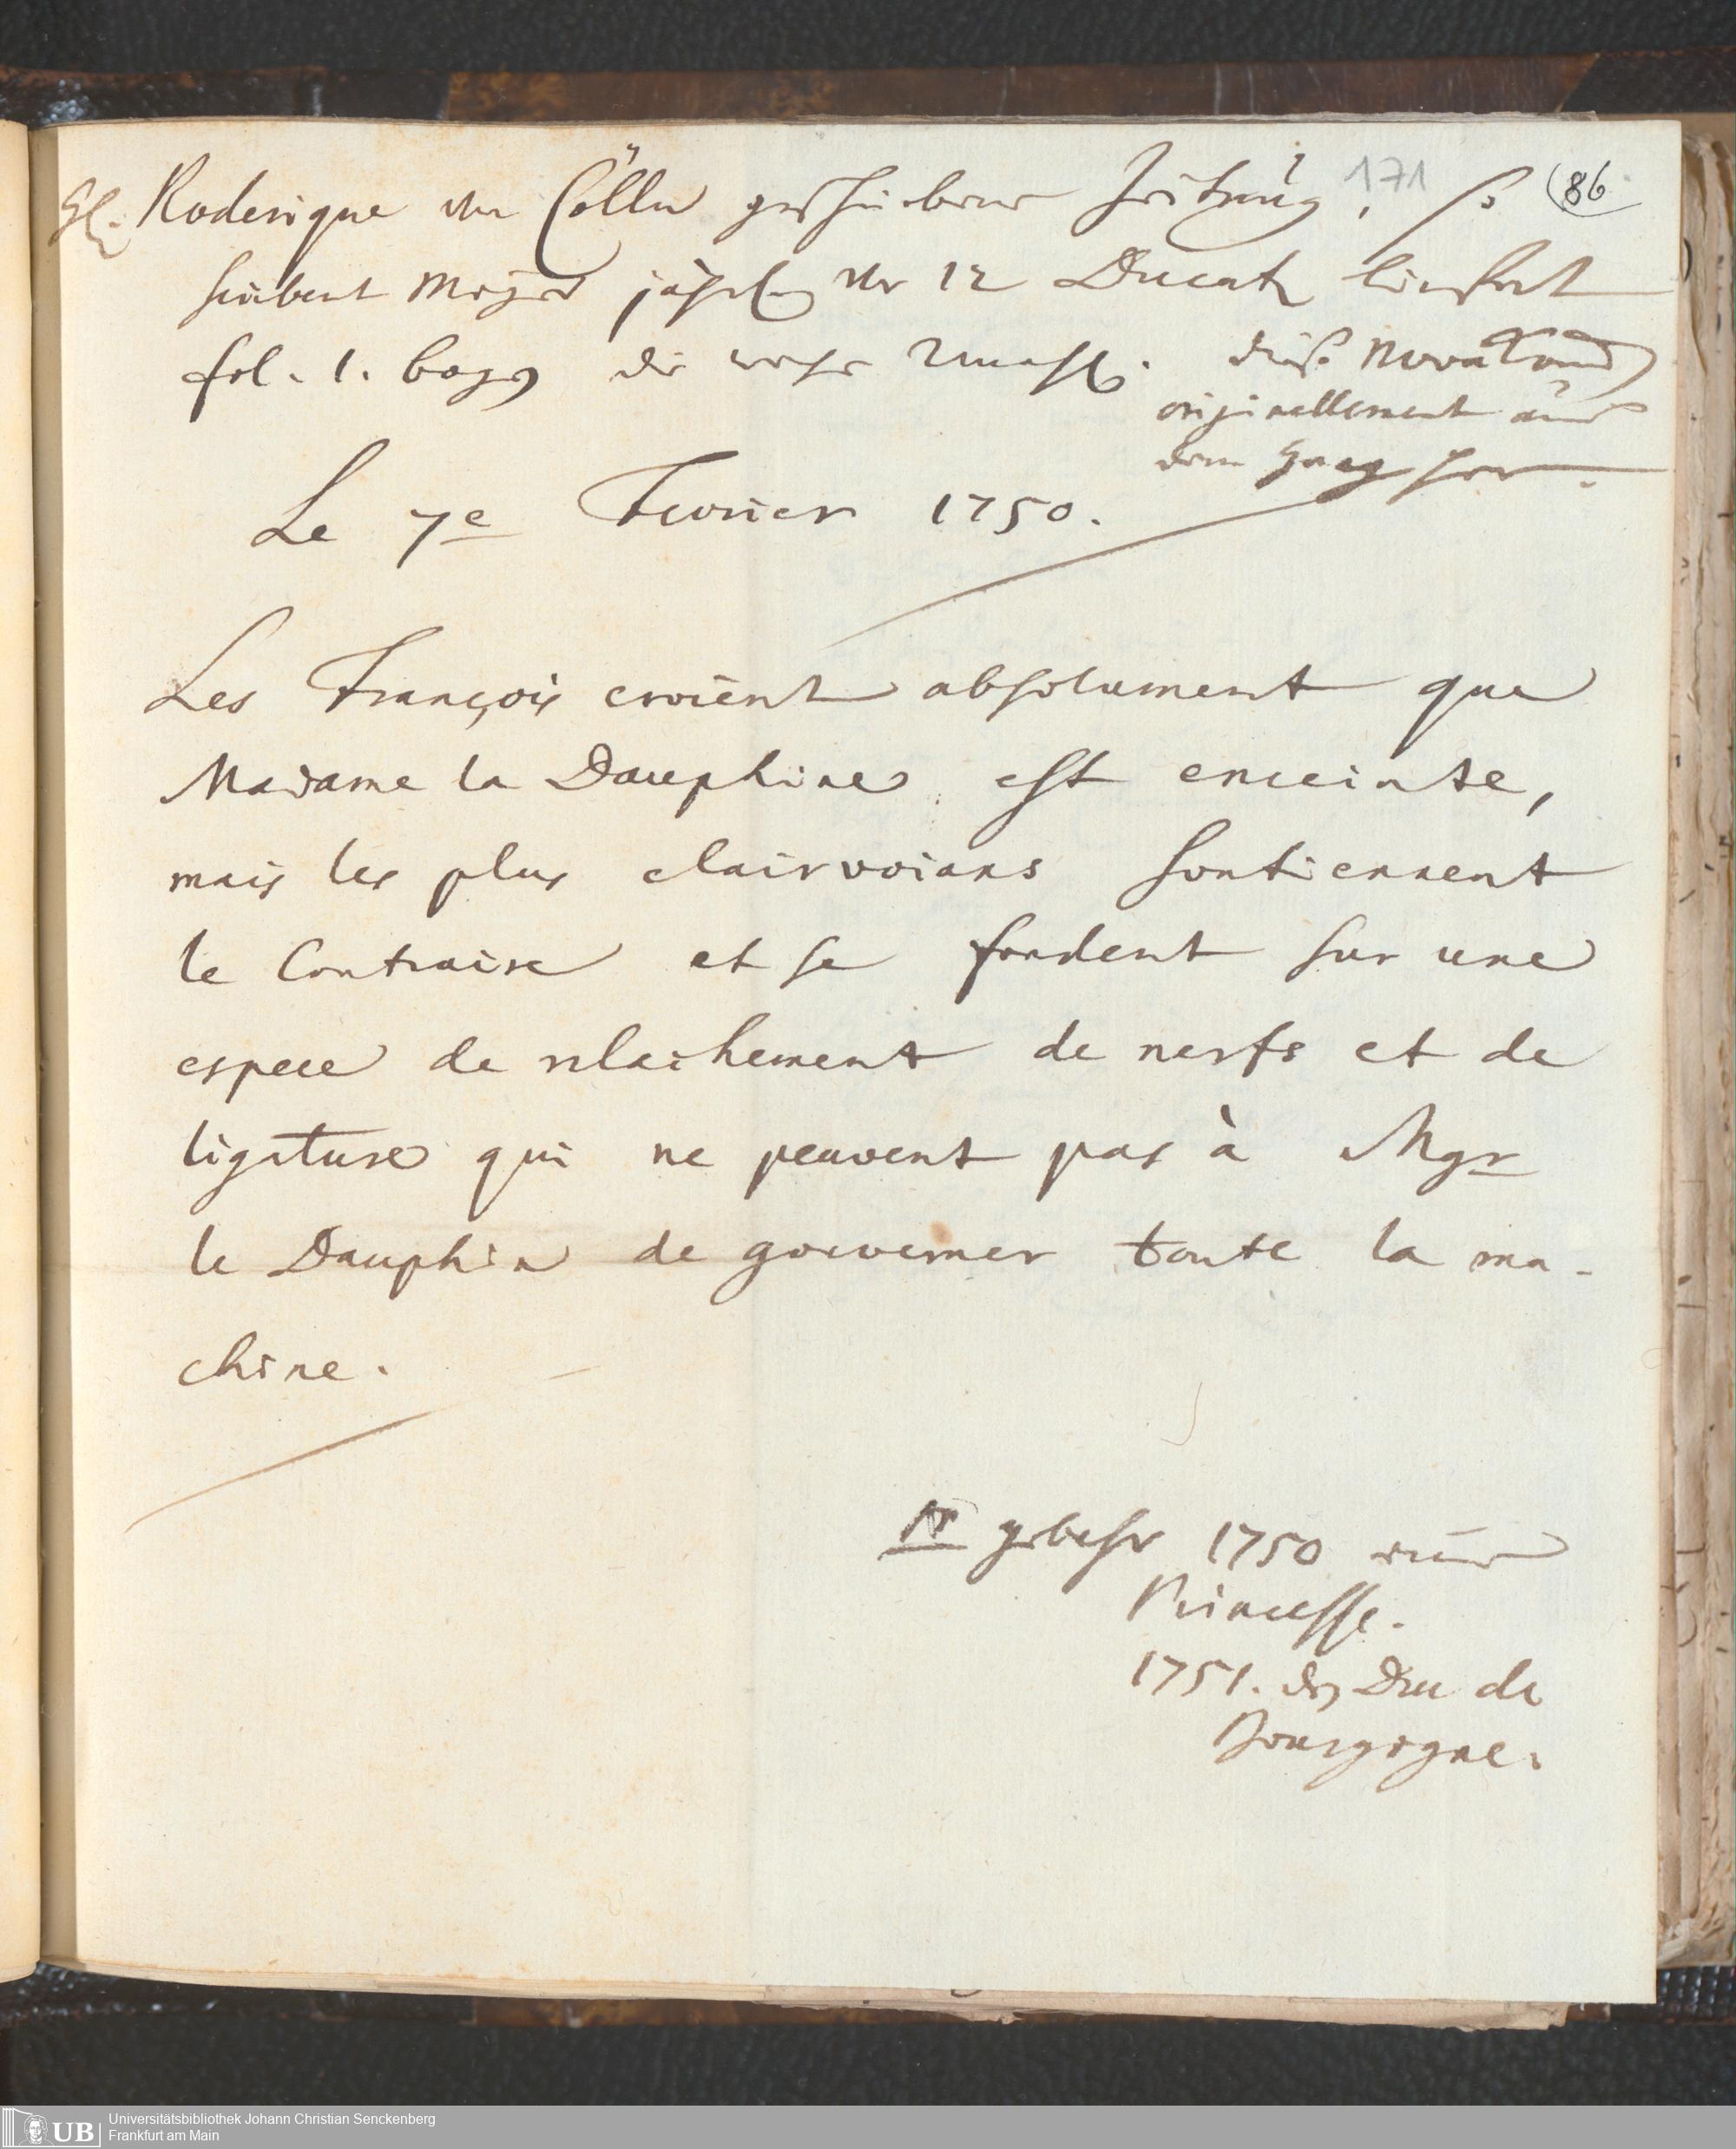 H. Roderique von Cölln geschriebene Zeitung, so
171
(86
hübent Meyer jährl. vor 12 Ducat. liefert
fol. 1. bogen die woche 2mahl. diese Nova
originellement aus
dem Haag her.
Le 7e Fevrier 1750.
Les François croient absolument que
Madame la Dauphine est enceinte,
mais les plus clairvoians soutiennent
le Contraire et se fondent sur une
espece de relachement de nerfs et de
ligature qui ne peuvent pas à Mgr
le Dauphin de gouverner toute la ma-
chine.
gebahr 1750 eine
Princesse.
1751. den Duc de
Bourgogne.
UB
Universitätsbibliothek Johann Christian Senckenberg
Frankfurt am Main